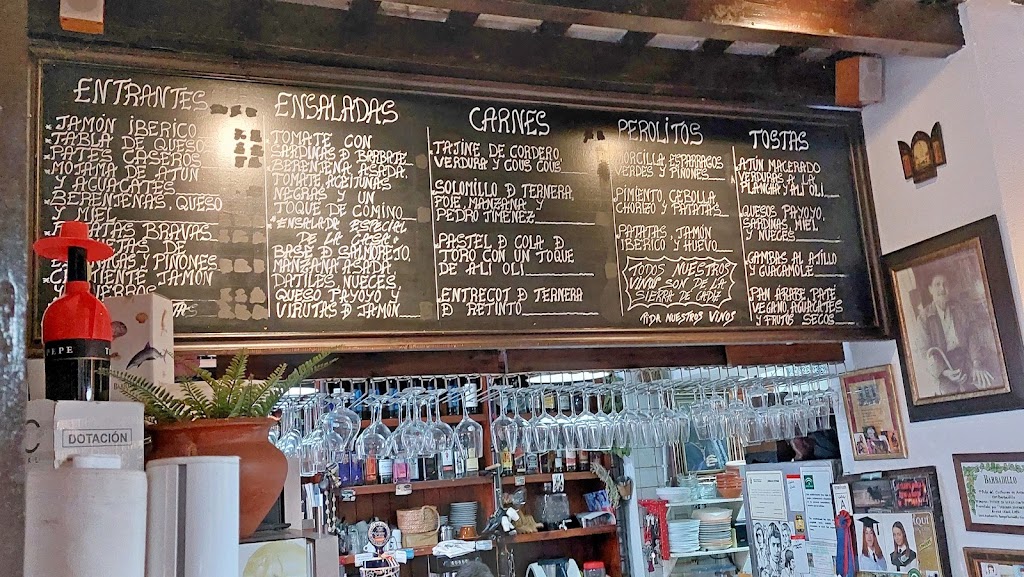 ENTRANTES
JAMÓN IBERICO
TABLA DE QUESO
PATES CASEROS
MOJAMA DE ATUN
Y AGUACATES
BERENJENAS, QUESO
Y MIEL
BRAVAS
DE
Y PIÑONES
JAMÓN
ENSALADAS
TOMATE CON
SARDINAS D BARBATE
BERENJENA ASADA
TOMATE, ACEITUNAS
NEGRAS Y UN
TOQUE DE COMINO
ENSALADA ESPECIAL
DE LA CASA
BASE D SALMOREJO,
MANZANA ASADA
DATILES, NUECES,
QUESO PAYOYO Y
VIRUTAS D JAMÓN
CARNES
TAJINE DE CORDERO
VERDURA Y COUS COUS
SOLOMILLO D TERNERA,
FOIE, MANZANA Y
PEDRO JIMENEZ
PASTEL D COLA D
TORO CON UN TOQUE
DE ALI OLI
ENTRECOT D TERNERA
D RETINTO
PEROLITOS
MORCILLA, ESPARRAGOS
VERDES Y PIÑONES
PIMIENTO, CEBOLLA
CHORIZO Y PATATAS
PATATAS, JAMÓN
IBERICO Y HUEVO
TODOS NUESTROS
VINOS SON DE LA
SIERRA DE CADIZ
PIDA NUESTROS VINOS
TOSTAS
ATÚN MACERADO
VERDURAS A LA
PLANCHA Y ALI OLI
QUESOS PAYOYO,
SARDINAS, MIEL
Y NUECES
GAMBAS AL AJILLO
Y GUACAMOLE
PAN ÁRABE, PATÉ
VEGANO, AGUACATES
Y FRUTOS SECOS
PEPE
DOTACIÓN
BARBADILLO